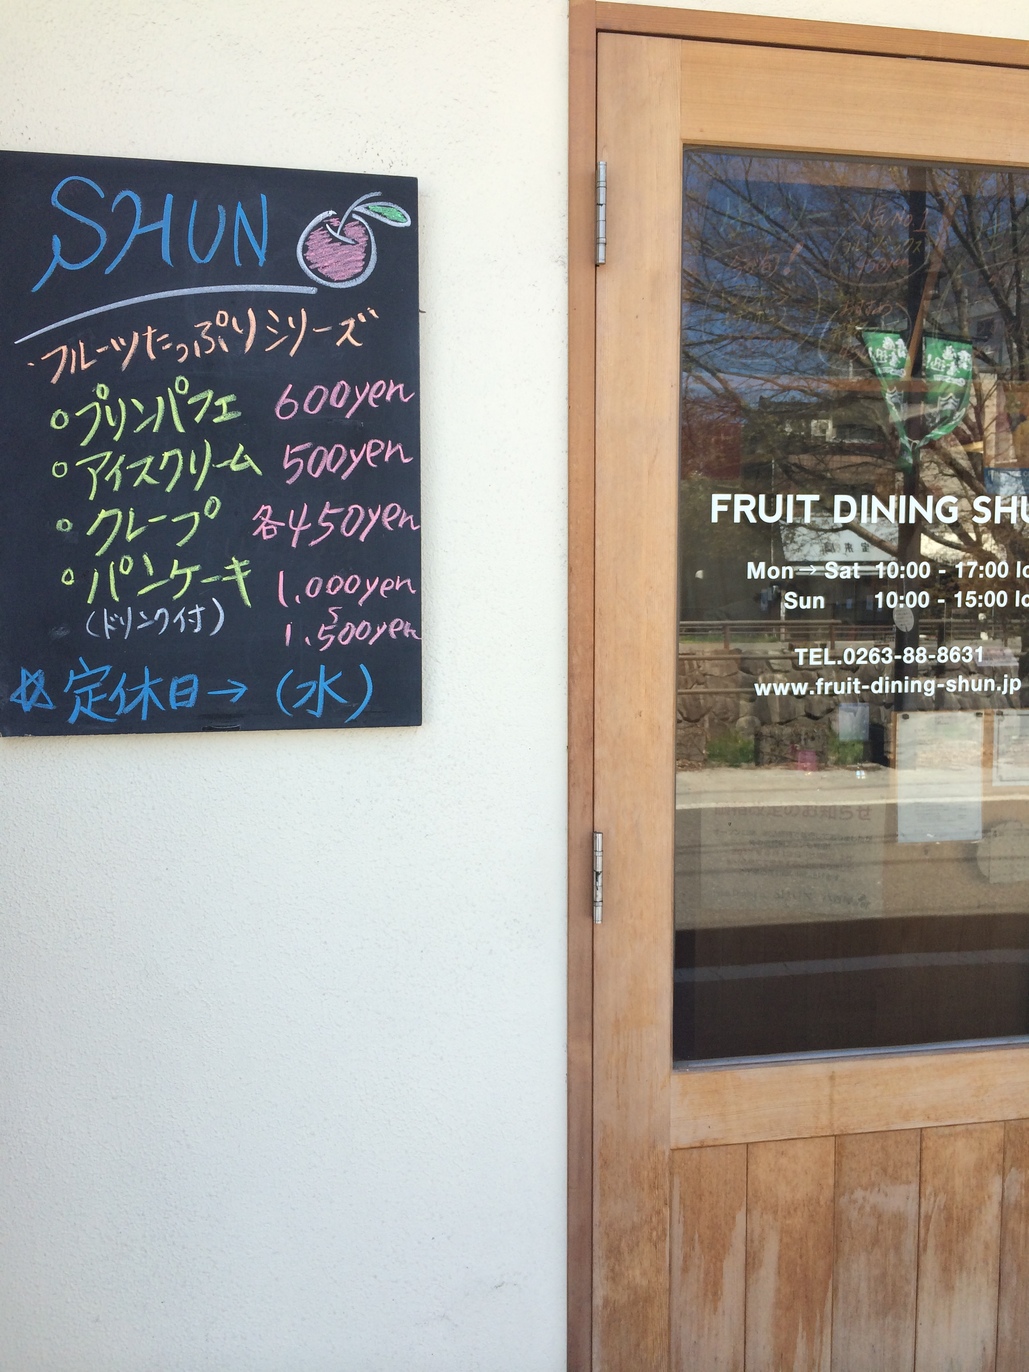 SHUN
フルーツたっぷりシリーズ
プリンパフェ 600yen
アイスクリーム 500yen
クレープ 各450yen
パンケーキ 1.000yen
(ドリンク付) 〜
1.500yen
☆定休日→(水)
FRUIT DINING SHU
Mon→Sat 10:00 - 17:00 lo
Sun 10:00 - 15:00 lo
TEL.0263-88-8631
www.fruit-dining-shun.jp